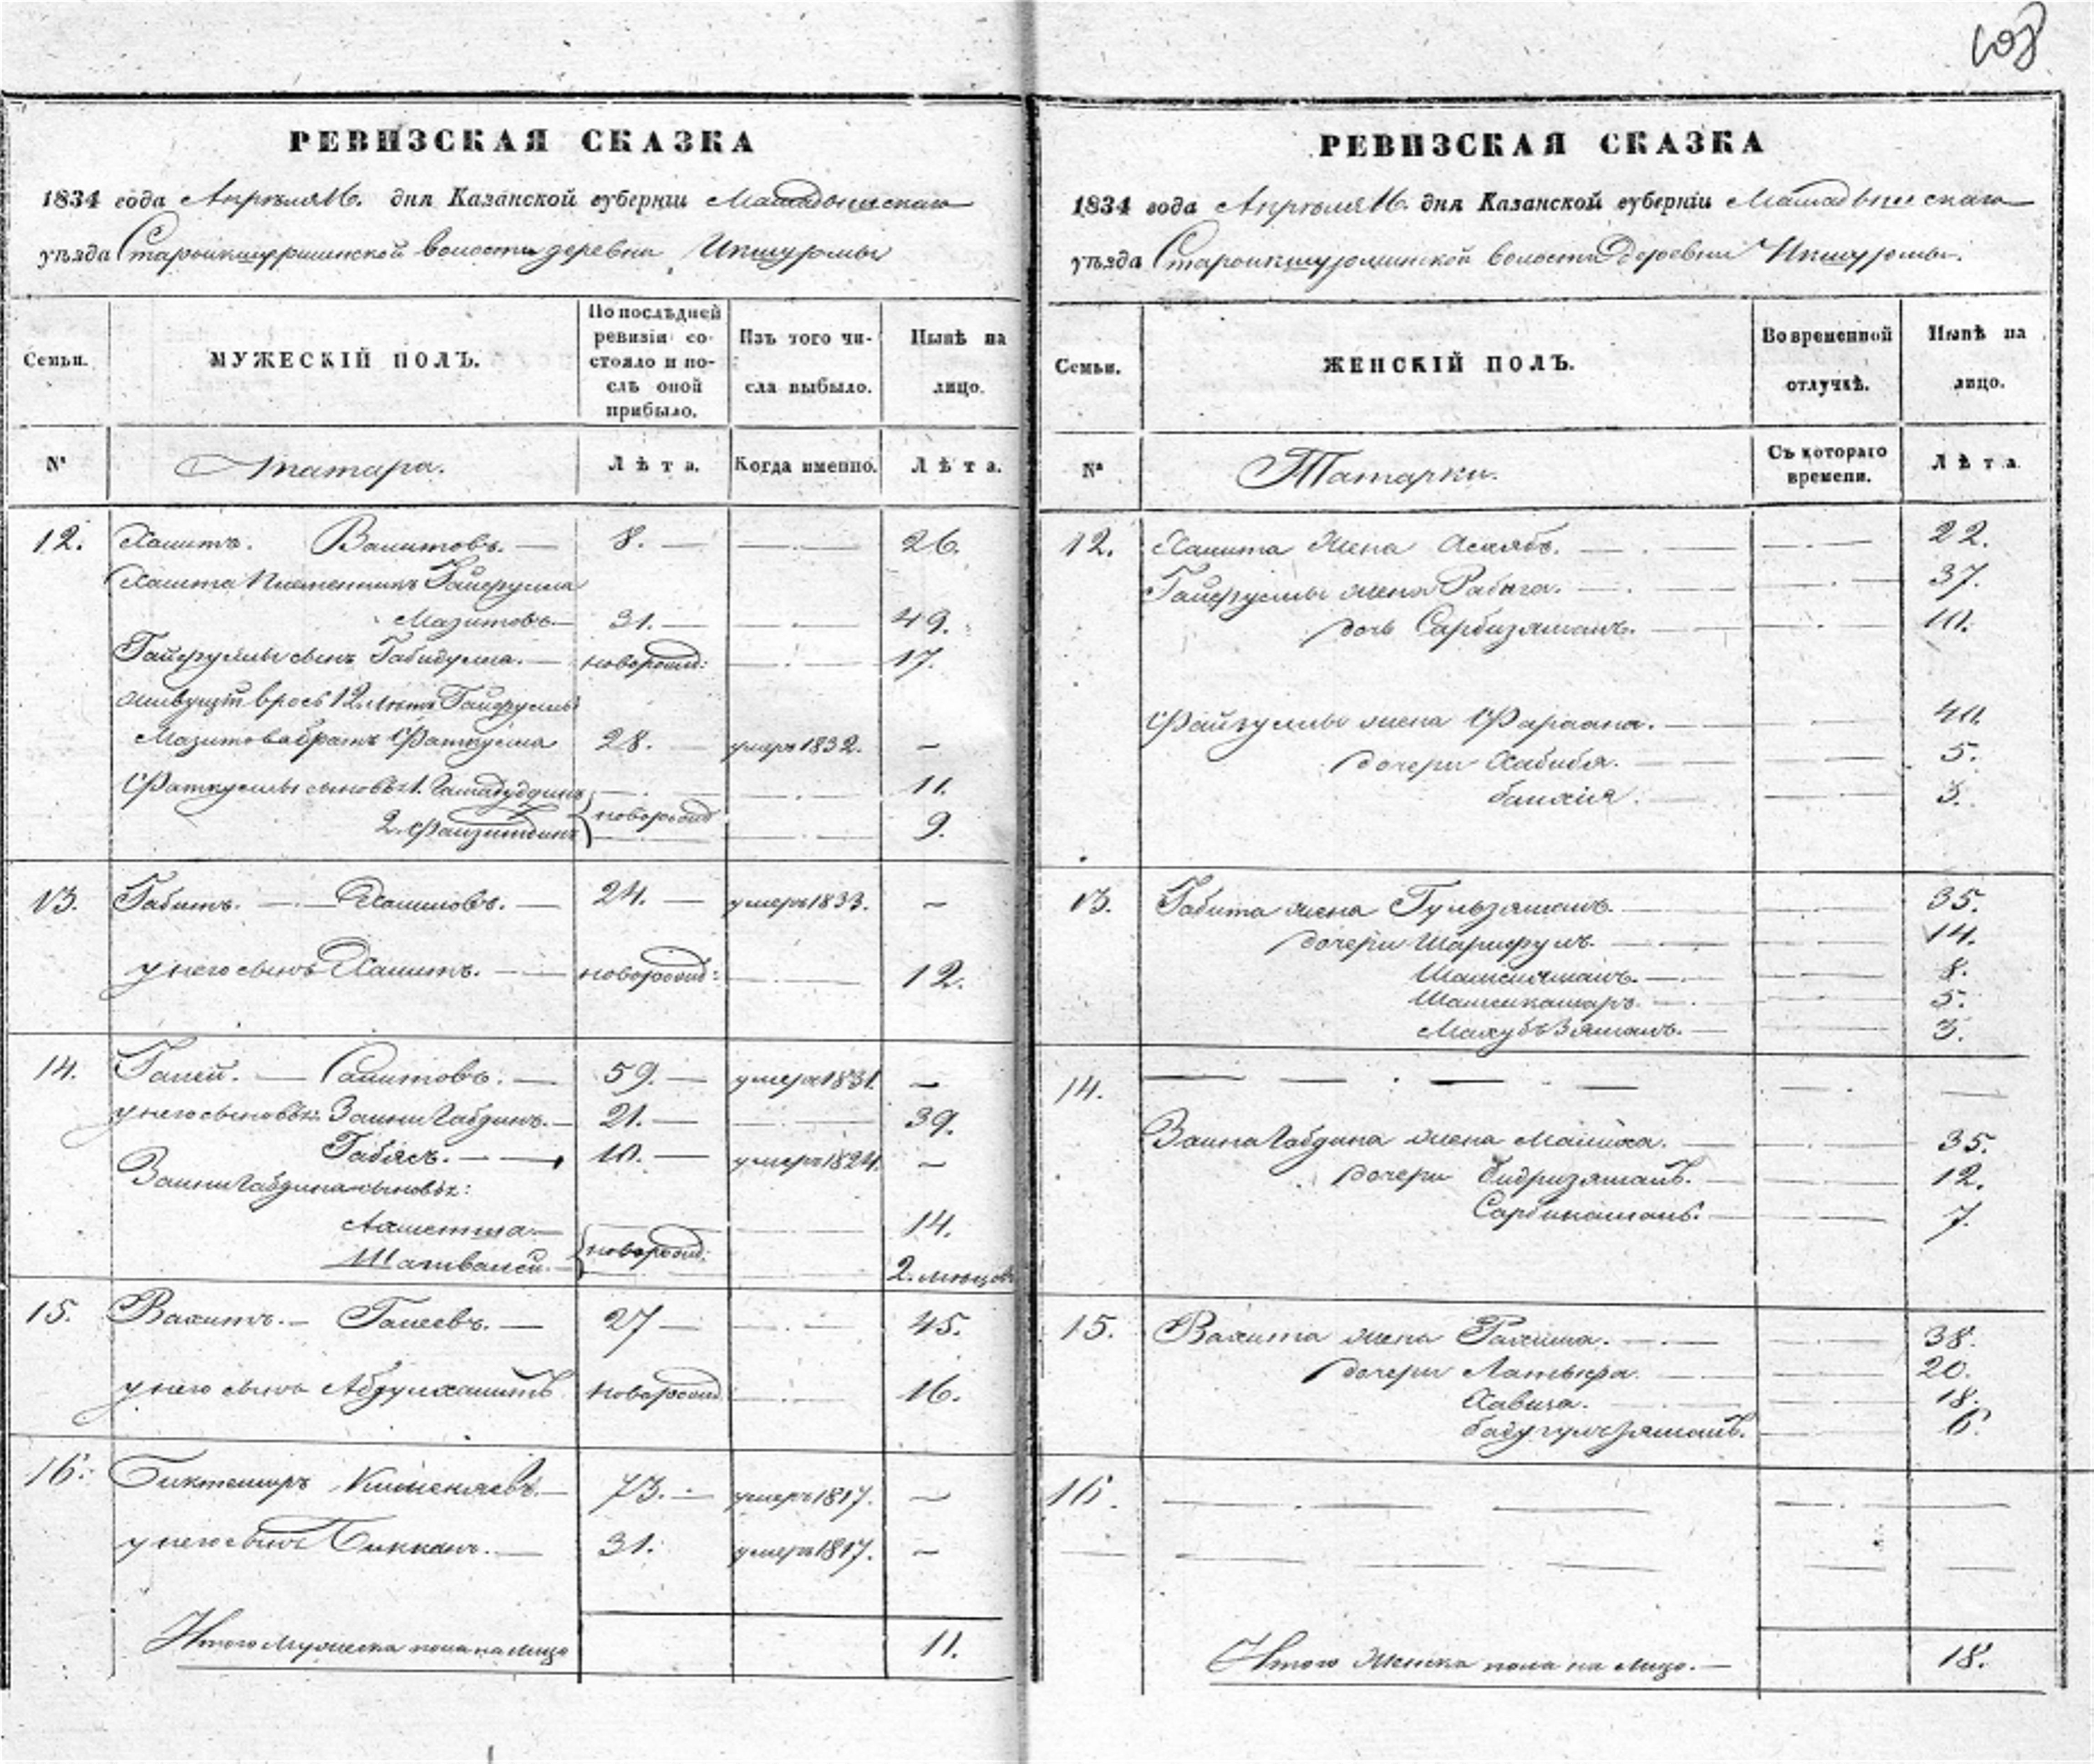 108
РЕВИЗСКАЯ СКАЗКА
1834 года Апрѣля 16. дня Казанской губерніи Мамадышскаго
уѣзда Староикшурминской волости деревни Икшурмы
Семьи.
МУЖЕСКІЙ ПОЛЪ.
По послѣдней ревизіи состояло и послѣ оной прибыло.
Изъ того числа выбыло.
Нынѣ на лицо.
№ Татара. Лѣта. Когда именно. Лѣта.
12. Хамитъ. Вамитовъ. — 8. — — 26.
Хамита племенникъ Гайфулла
Мазитовъ — 31. — — 49.
Гайфуллы сынъ Габидулла. — новорожд: — 17.
живущій врось 12 лѣтъ Гайфуллы
Мазитова братъ Фаткулла 28. — умеръ 1832. —
Фаткуллы сыновья 1. — 11.
2. Фаизитдинъ новорожд — 9.
13. Габитъ. — Хамитовъ. — 24. — умеръ 1833. —
у него сынъ Хамитъ. — новорожд: — 12.
14. Галей. — Самитовъ. — 59. — умеръ 1831. —
у него сыновья: Зайнигабдинъ. — 21. — — 39.
Габясъ. — 10. — умеръ 1824. —
Зайнигабдина сыновья:
Ахметша — 14.
Шагивалей. — новорожд: 2. мѣсцовъ
15. Вахитъ. — Галеевъ. — 27 — — 45.
у него сынъ Абдулхамитъ новорожд. — 16.
16. Биктемиръ — 73. — умеръ 1817. —
у него сынъ Биккинъ. — 31. умеръ 1817. —
Итого мужеска пола на лицо 11.
РЕВИЗСКАЯ СКАЗКА
1834 года Апрѣля 16. дня Казанской губерніи Мамадышскаго
уѣзда Староикшурминской волости деревни Икшурмы.
Семьи.
ЖЕНСКІЙ ПОЛЪ.
Во временной отлучкѣ.
Нынѣ на лицо.
№ Татарки. Съ котораго времени. Лѣта
12. Хамита жена — 22.
Гайфуллы жена Рабига. — 37.
дочь Сарбизямалъ. — 10.
Файзуллы жена — 40.
дочери Хабибя. — 5.
— 3.
13. Габита жена Гульзямалъ. — 35.
дочери Шарифулъ. — 14.
Шамсиямалъ. — 8.
Шамсикамаръ. — 5.
Махубъзямалъ. — 3.
14. — — —
Зайнигабдина жена Малиха. — 35.
дочери Бидризямалъ. — 12.
Сарбикамалъ. — 7.
15. Вахита жена Рахима. — 38.
дочери Латыфа. — 20.
Хавиза. — 18.
— 6.
16. — — —
Итого женска пола на лицо. — 18.